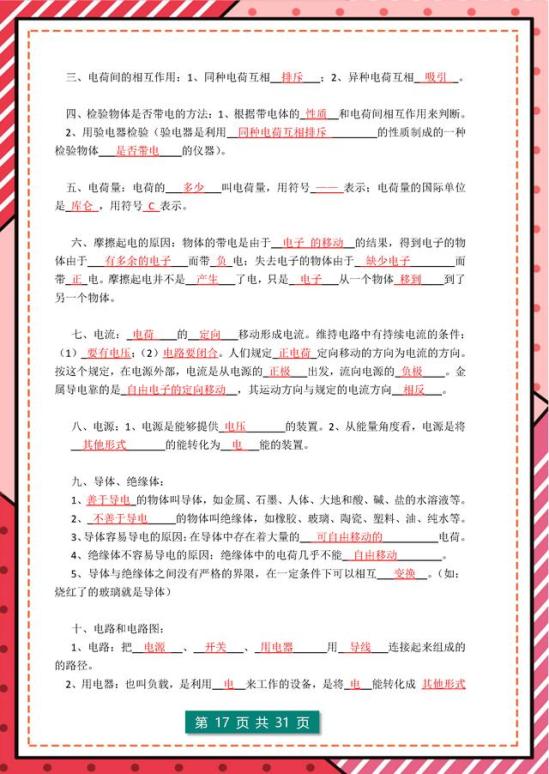 三、电荷间的相互作用：1、同种电荷互相 排斥 ；2、异种电荷互相 吸引 。
四、检验物体是否带电的方法：1、根据带电体的 性质 和电荷间相互作用来判断。
2、用验电器检验（验电器是利用 同种电荷互相排斥 的性质制成的一种
检验物体 是否带电 的仪器）。
五、电荷量：电荷的 多少 叫电荷量，用符号 —— 表示；电荷量的国际单位
是 库仑 ，用符号 C 表示。
六、摩擦起电的原因：物体的带电是由于 电子 的移动 的结果，得到电子的物
体由于 有多余的电子 而带 负 电；失去电子的物体由于 缺少电子 而
带 正 电。摩擦起电并不是 产生 了电，只是 电子 从一个物体 移到 到了
另一个物体。
七、电流： 电荷 的 定向 移动形成电流。维持电路中有持续电流的条件：
（1） 要有电压；（2）电路要闭合。人们规定 正电荷 定向移动的方向为电流的方向。
按这个规定，在电源外部，电流是从电源的 正极 出发，流向电源的 负极 。金
属导电靠的是 自由电子的定向移动 ，其运动方向与规定的电流方向 相反 。
八、电源：1、电源是能够提供 电压 的装置。2、从能量角度看，电源是将
其他形式 的能转化为 电 能的装置。
九、导体、绝缘体：
1、善于导电 的物体叫导体，如金属、石墨、人体、大地和酸、碱、盐的水溶液等。
2、 不善于导电 的物体叫绝缘体，如橡胶、玻璃、陶瓷、塑料、油、纯水等。
3、导体容易导电的原因：在导体中存在着大量的 可自由移动的 电荷。
4、绝缘体不容易导电的原因：绝缘体中的电荷几乎不能 自由移动 。
5、导体与绝缘体之间没有严格的界限，在一定条件下可以相互 变换 。（如：
烧红了的玻璃就是导体）
十、电路和电路图：
1、电路：把 电源 、 开关 、 用电器 用 导线 连接起来组成的
的路径。
2、用电器：也叫负载，是利用 电 来工作的设备，是将 电 能转化成 其他形式
第 17 页 共 31 页